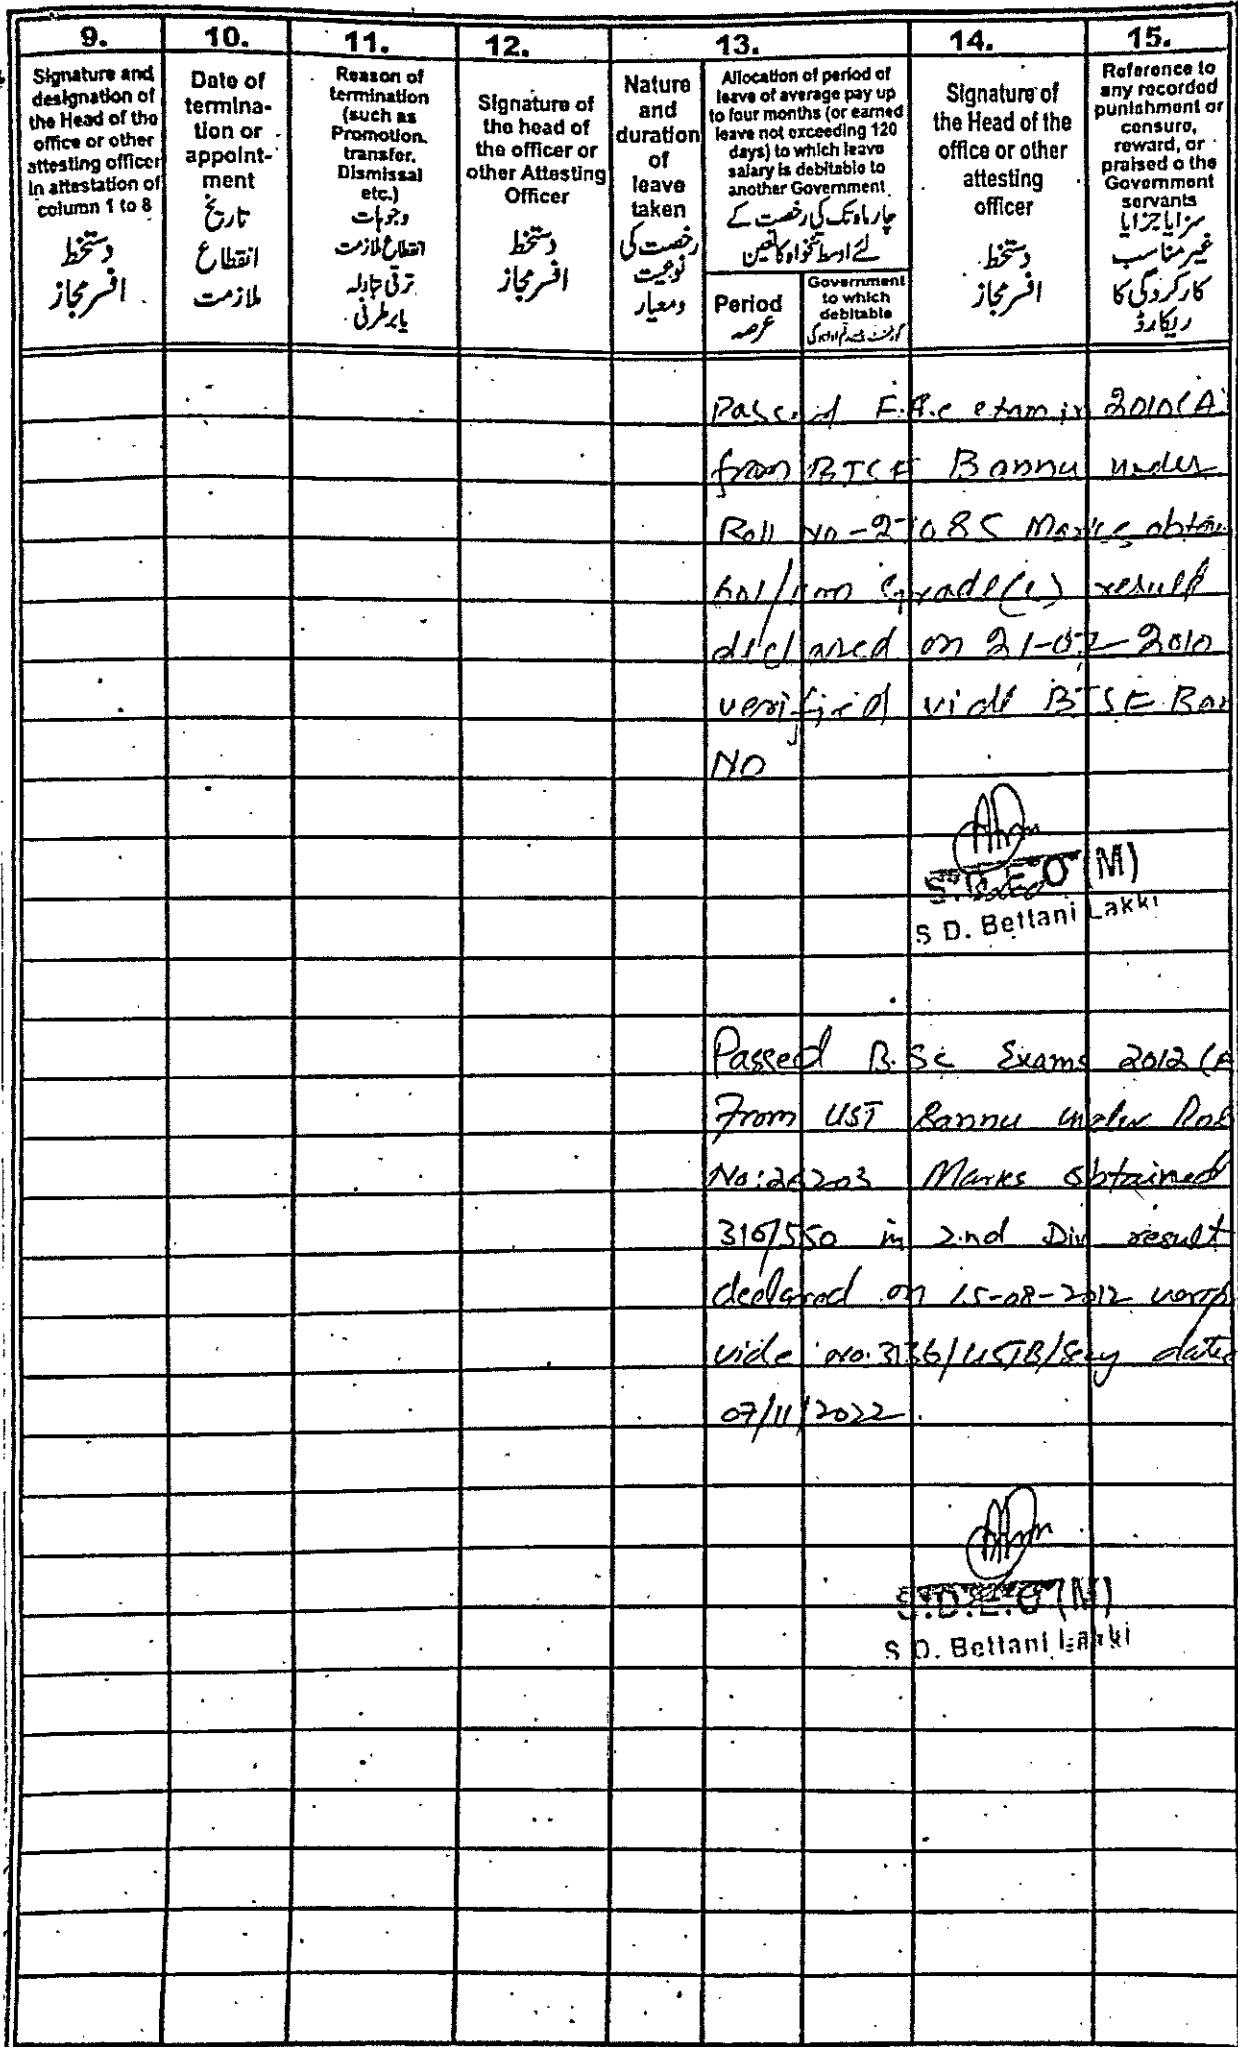 9.
10.
11.
12.
13.
14.
15.
Signature and
designation of
the Head of the
office or other
attesting officer
in attestation of
column 1 to 8
دستخط
افسر مجاز
Date of
termina-
tion or
appoint-
ment
تاریخ
انقطاع
ملازمت
Reason of
termination
(such as
Promotion.
transfer.
Dismissal
etc.)
وجوہات
انقطاع ملازمت
ترقی تبادلہ
یا برطرفی
Signature of
the head of
the officer or
other Attesting
Officer
دستخط
افسر مجاز
Nature
and
duration
of
leave
taken
رخصت کی
نوعیت
ومعیار
Allocation of period of
leave of average pay up
to four months (or earned
leave not exceeding 120
days) to which leave
salary is debitable to
another Government
چار ماہ تک کی رخصت کے
لئے اوسط تنخواہ کا تعین
Period
عرصہ
Government
to which
debitable
Signature of
the Head of the
office or other
attesting
officer
دستخط
افسر مجاز
Reference to
any recorded
punishment or
censure,
reward, or
praised o the
Government
servants
سزا یا جزا یا
غیر مناسب
کارکردگی کا
ریکارڈ
Passed exam in 2010 (A
from Bannu under
Roll No - Marks obtain
Grade result
declared on 2010
verified vide
No
(M)
S D. Bettani Lakki
Passed B.Sc Exams 2012 (A
From UST Bannu under
No: 26203 Marks obtained
316/550 in 2nd Div result
declared on 15-08-2012
vide no. 3136/USTB/ dated
07/11/2022.
S.D.E.O (M)
S D. Bettani Lakki